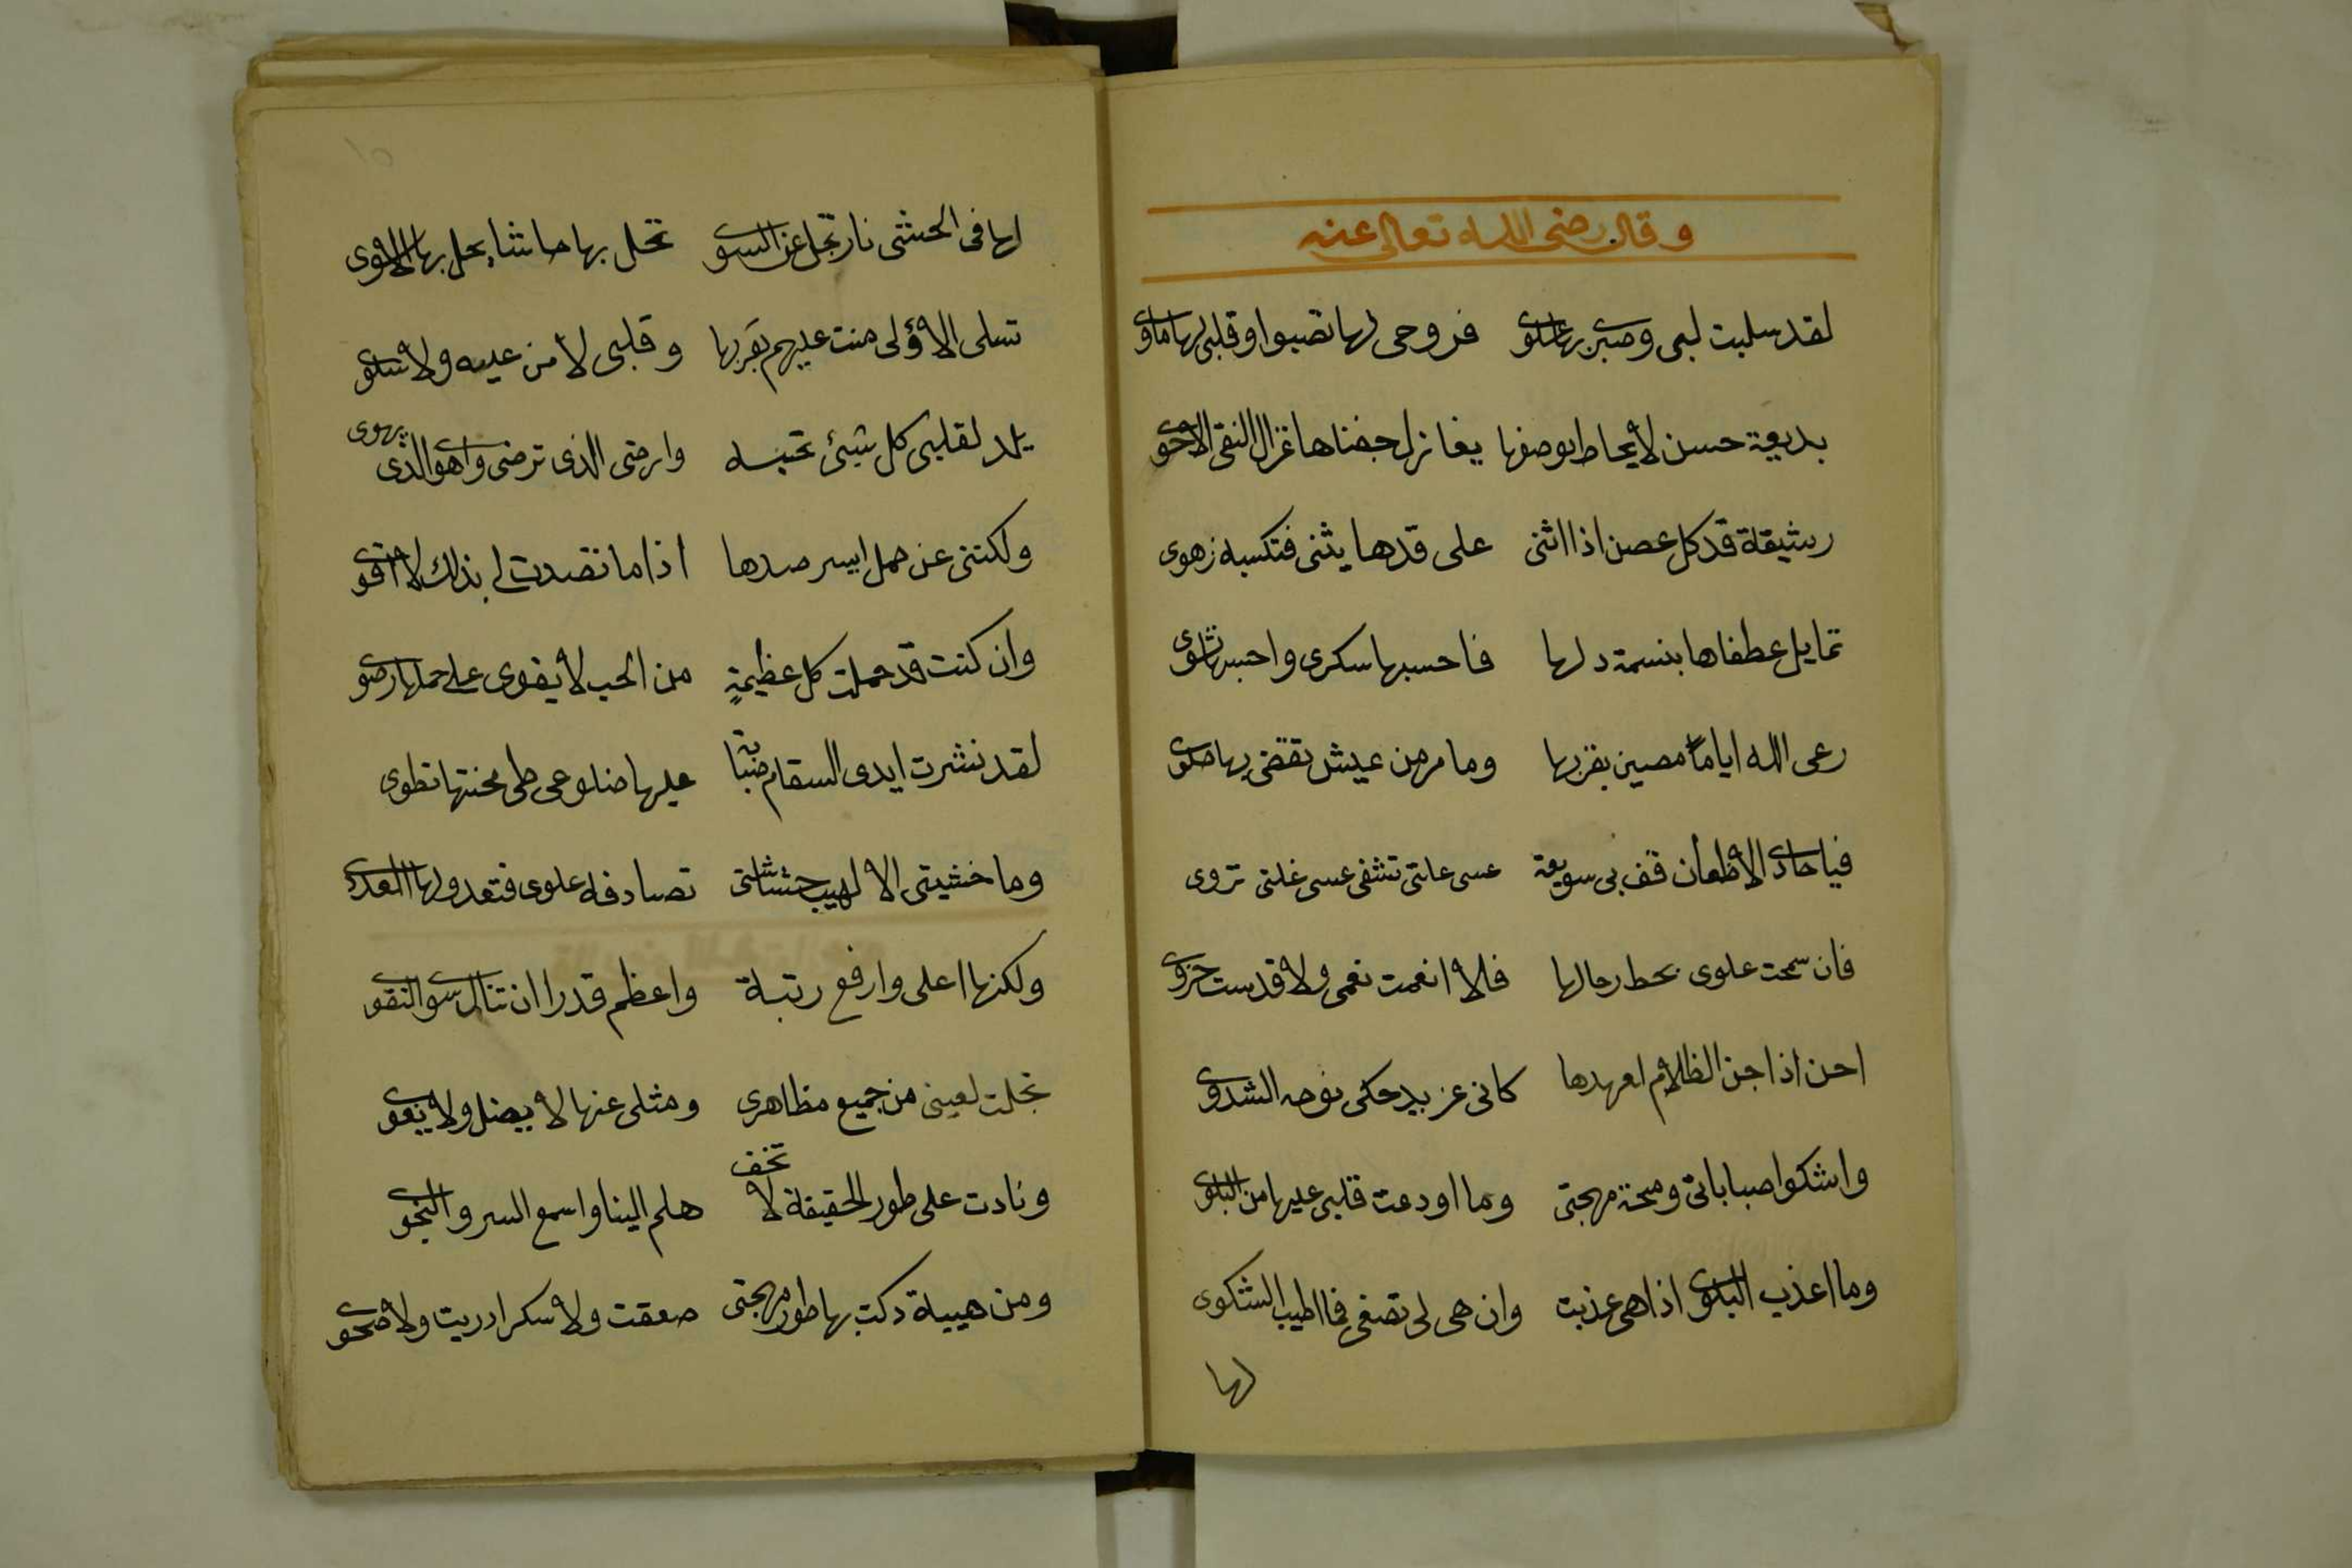 وقال رضى الله تعالى عنه
لقد سلبت لبى وصبرى بها علوى فروحى لها تصبوا وقلبى لها ماوى
بديعة حسن لا يحاط بوصفها يغازل جفناها غزال النقى الاحوى
رشيقة قد كل عصن اذا انثنى على قدها يثنى فتكسبه زهوى
تمايل عطفاها بنسمة دلها فاحسبها سكرى واحسبها نشوى
رعى الله اياما مصين بقربها وما مر من عيش تقضى بها حلوى
فيا حادى الاظعان قف بى سويعة عسى علتى تشفى عسى غلتى تروى
فان سمحت علوى بحط رحالها فلا انعمت نعمى ولا قدست حزوى
احن اذا جن الظلام لعهدها كانى عزيد حكى نوحه الشدوى
واشكوا صباباتى ومحنة مهجتى وما اودعت قلبى عليها من البلوى
وما اعذب البلوى اذا هى عذبت وان هى لى تصغى فما اطيب الشكوى
لها
لها فى الحشى نار تجل عن السوى تحل بها حاشا يحل بها الاهوى
تسلى الاولى منت عليهم بقربها وقلبى لا من عليه ولا سلوى
يلد لقلبى كل شيئ تحبه وارضى الذى ترضى واهوى الذى يهوى
ولكننى عن حمل ايسر صدها اذا ما تصدت لى بذلك لا اقوى
وان كنت قد حملت كل عظيمة من الحب لا يقوى على حملها رضوى
لقد نشرت ايدى السقام صبابة عليها ضلوعى طى محنتها تطوى
وما خشيتى الا لهيب حشاشتى تصادفه علوى فتعدو لها العدوى
ولكنها اعلى وارفع رتبة واعظم قدرا ان تنال سوى التقوى
تجلت لعينى من جميع مظاهرى ومثلى عنها لا يضل ولا يغوى
ونادت على طور الحقيقة لا تخف هلم الينا واسمع السر والنجوى
ومن هيبة دكت بها طور مهجتى صعقت ولا سكرا دريت ولا صحوى